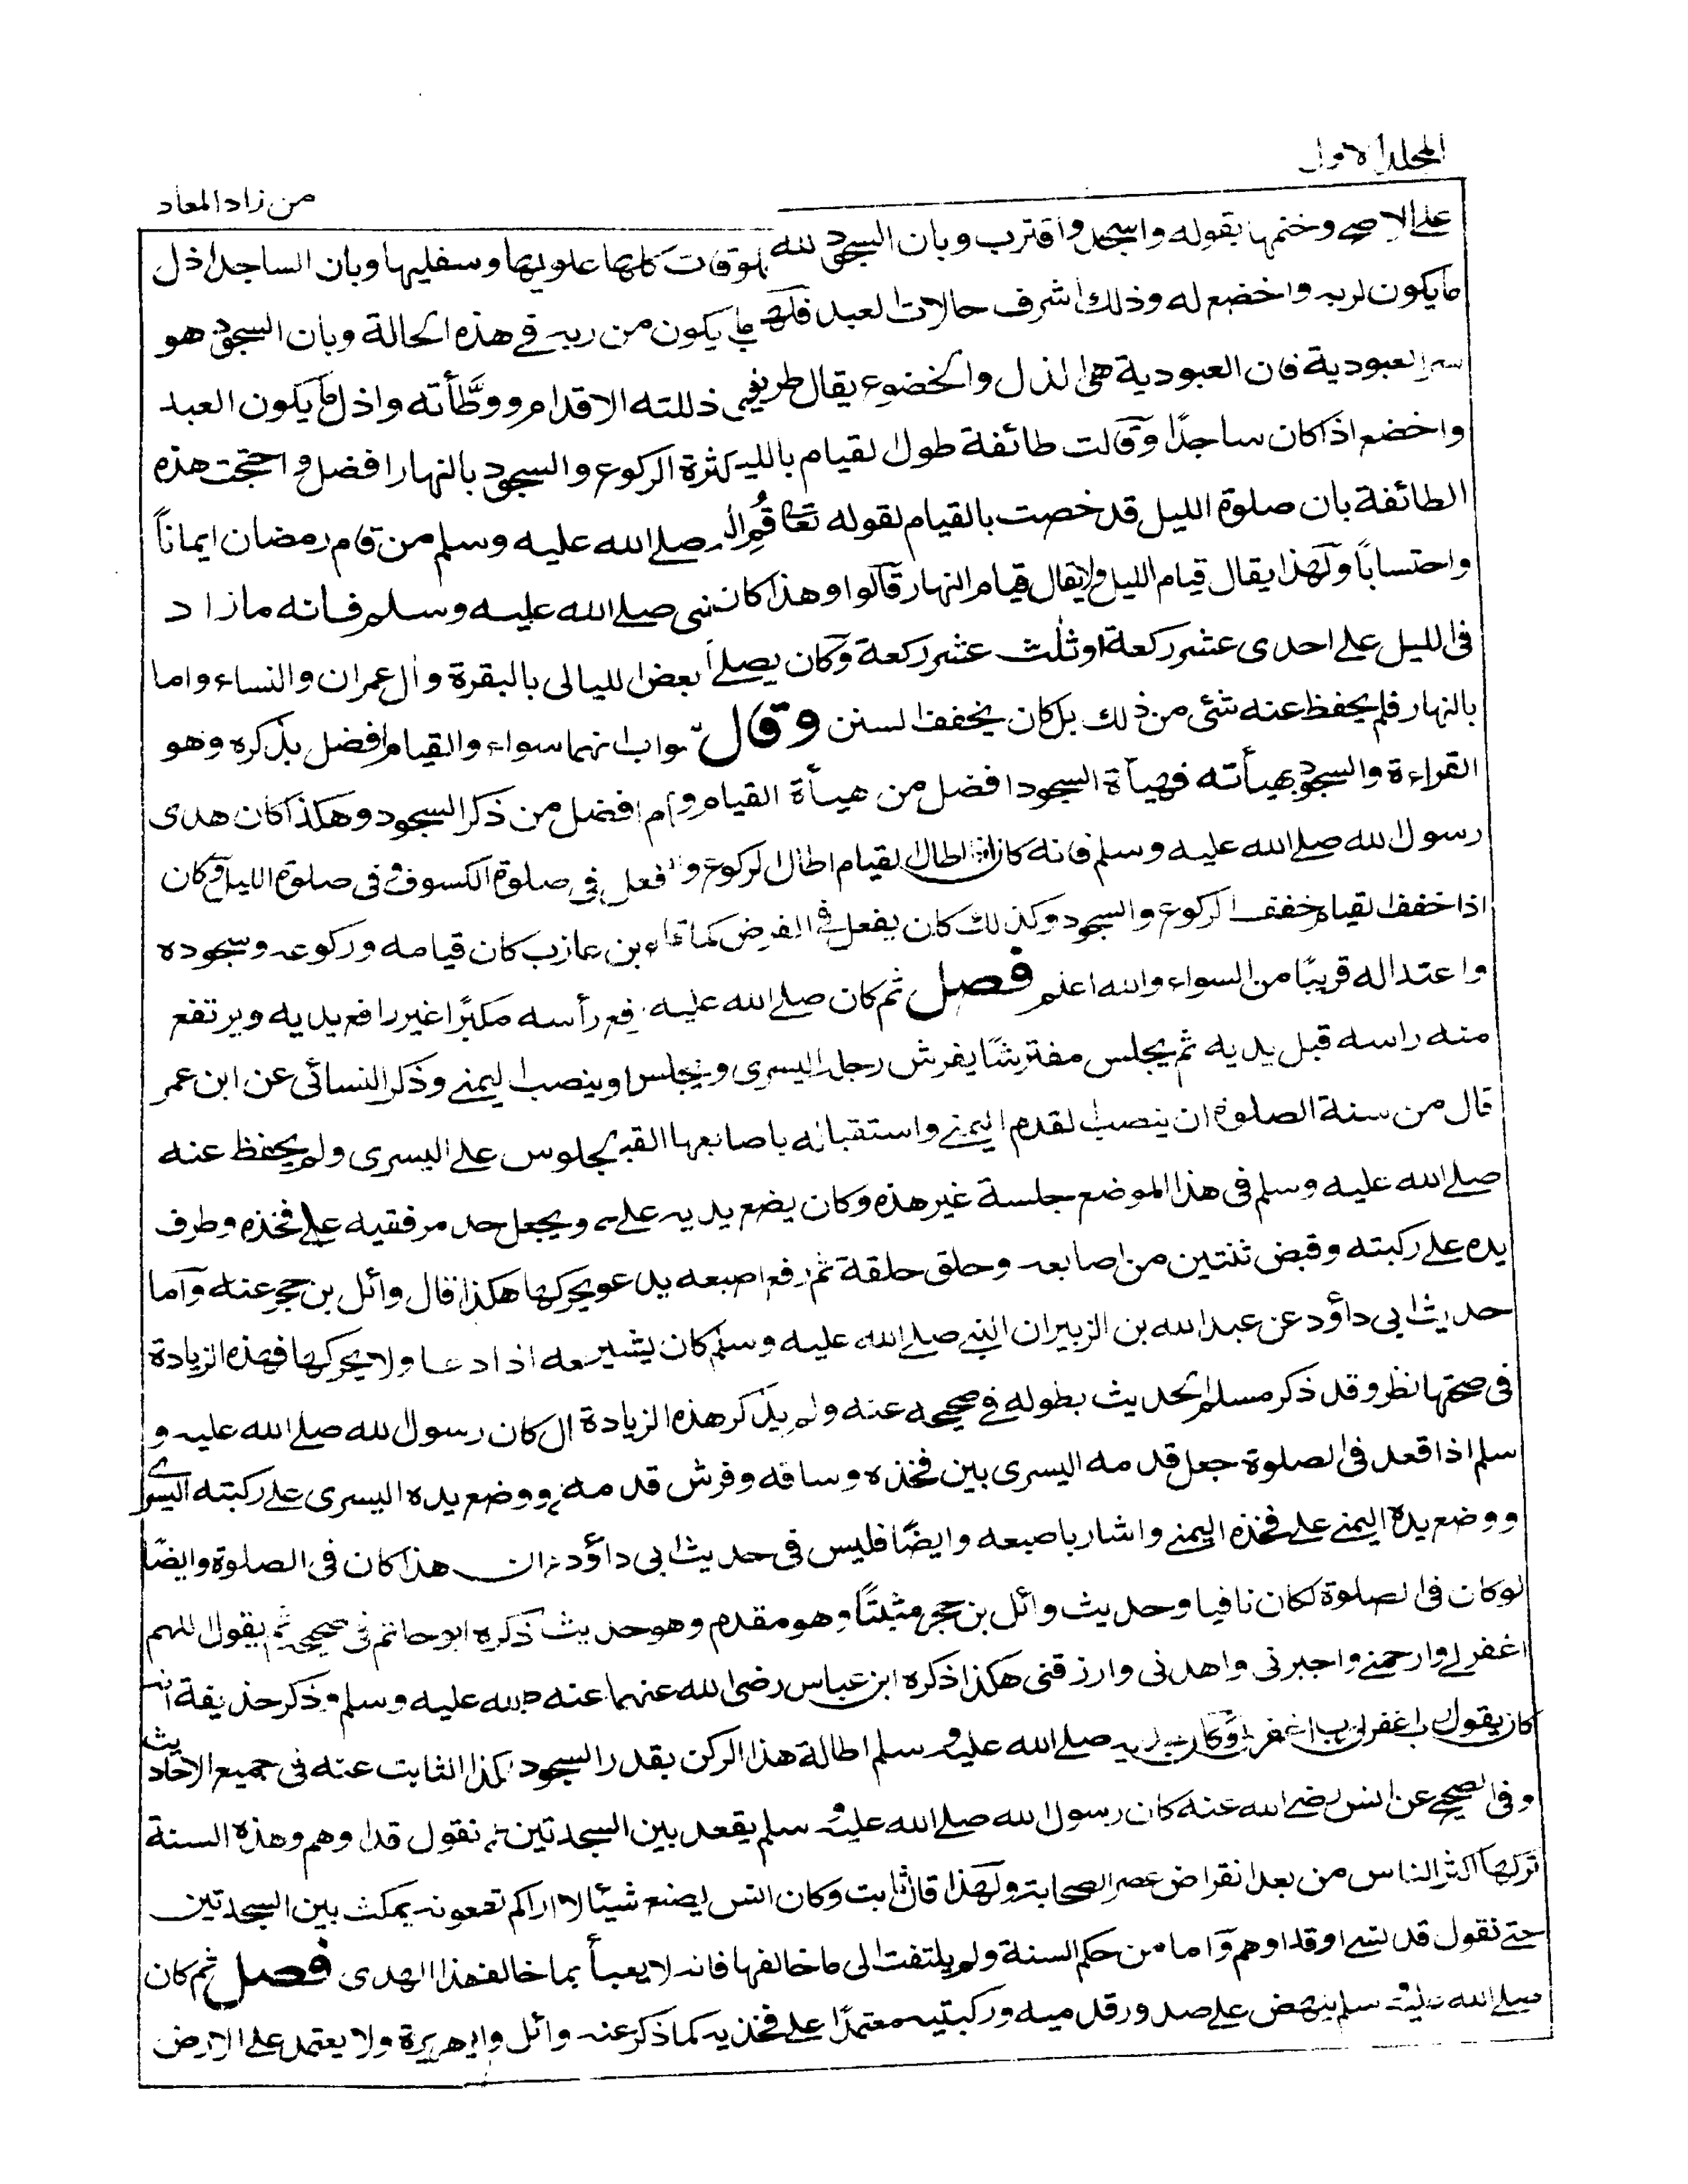 المجلد الاول
من زاد المعاد
على الاصح وختمها بقوله واسجد واقترب وبان السجود لله لوقات كلها علويها وسفليها وبان الساجد اذل
ما يكون لربه واخضع له وذلك اشرف حالات العبد فلهذا ما يكون من ربه في هذه الحالة وبان السجود هو
سر العبودية فان العبودية هي الذل والخضوع يقال طريق ذللته الاقدام ووطَّأته واذل ما يكون العبد
واخضع اذا كان ساجدًا وقالت طائفة طول القيام بالليل كثرة الركوع والسجود بالنهار افضل واحتجت هذه
الطائفة بان صلوة الليل قد خصت بالقيام لقوله تعالى قُمِ صلى الله عليه وسلم من قام رمضان ايماناً
واحتساباً ولهذا يقال قيام الليل ولا يقال قيام النهار قالوا وهذا كان نبى صلى الله عليه وسلم فانه ما زاد
فى الليل على احدى عشر ركعة اوثلث عشر ركعة وكان يصلى بعض الليالى بالبقرة وأل عمران والنساء واما
بالنهار فلم يحفظ عنه شئ من ذلك بل كان يخفف السنن وقال صواب انهما سواء والقيام افضل بذكره وهو
القراءة والسجود بهيأته فهيأة السجود افضل من هيأة القيام و ام افضل من ذكر السجود وهكذا كان هدى
رسول الله صلى الله عليه وسلم فانه كان اذا اطال القيام اطال الركوع و فعل فى صلوة الكسوف وفى صلوة الليل وكان
اذا خفف القيام خفف الركوع والسجود وكذلك كان يفعل فى الفرض كما قا ء بن عازب كان قيامه وركوعه وسجوده
واعتداله قريبًا من السواء والله اعلم فصل ثم كان صلى الله عليه فع رأسه مكبرًا غير رافع يديه ويرتفع
منه راسه قبل يديه ثم يجلس مفترشًا يفرش رجله اليسرى ويجلس وينصب اليمنى وذكر النسائى عن ابن عمر
قال من سنة الصلوة ان ينصب القدم اليمنى واستقباله باصابعها القبلة الجلوس على اليسرى ولم يحفظ عنه
صلى الله عليه وسلم فى هذا الموضع جلسة غير هذه وكان يضع يديه على ويجعل حد مرفقيه على فخذه وطرف
يده على ركبته وقبض ثنتين من اصابعه وحلق حلقة ثم رفع اصبعه يدعو يحركها هكذا قال وائل بن حجر عنه وآما
حديث ابى داؤد عن عبد الله بن الزبير ان النبى صلى الله عليه وسلم كان يشير باصبعه اذا دعا ولا يحركها فهذه الزيادة
فى صحتها نظر وقد ذكر مسلم الحديث بطوله فى صحيحه عنه ولم يذكر هذه الزيادة ال كان رسول الله صلى الله عليه و
سلم اذا قعد فى الصلوة جعل قدمه اليسرى بين فخذه وساقه وفرش قدمه ووضع يده اليسرى على ركبته اليسرى
ووضع يده اليمنى على فخذه اليمنى واشار باصبعه وايضًا فليس فى حديث ابى داؤد ان هذا كان فى الصلوة وايضًا
لو كان فى الصلوة لكان نافيا وحديث وائل بن حجر مثبتًا وهو مقدم وهو حديث ذكره ابو حاتم فى صحيحه ثم يقول اللهم
اغفر لى وارحمنى واجبرنى واهدنى وارزقنى هكذا ذكره ابن عباس رضى الله عنهما عنه صلى الله عليه وسلم وذكر حذيفة انه
كان يقول رب اغفر لى رب اغفر لى وكان هديه صلى الله عليه وسلم اطالة هذا الركن بقدر السجود هكذا الثابت عنه فى جميع الاحاديث
وفى الصحيح عن انس رضى الله عنه كان رسول الله صلى الله عليه وسلم يقعد بين السجدتين حتى نقول قد اوهم وهذه السنة
تركها اكثر الناس من بعد انقراض عصر الصحابة ولهذا قال ثابت وكان انس يصنع شيئا لا اراكم تصنعونه يمكث بين السجدتين
حتى نقول قد نسى او قد اوهم وآما من حكم السنة ولم يلتفت الى ما خالفها فانه لا يعبأ بما خالف هذا الهدى فصل ثم كان
صلى الله عليه وسلم ينهض على صدور قدميه وركبتيه معتمدًا على فخذيه كما ذكر عنه وائل وابو هريرة ولا يعتمد على الارض